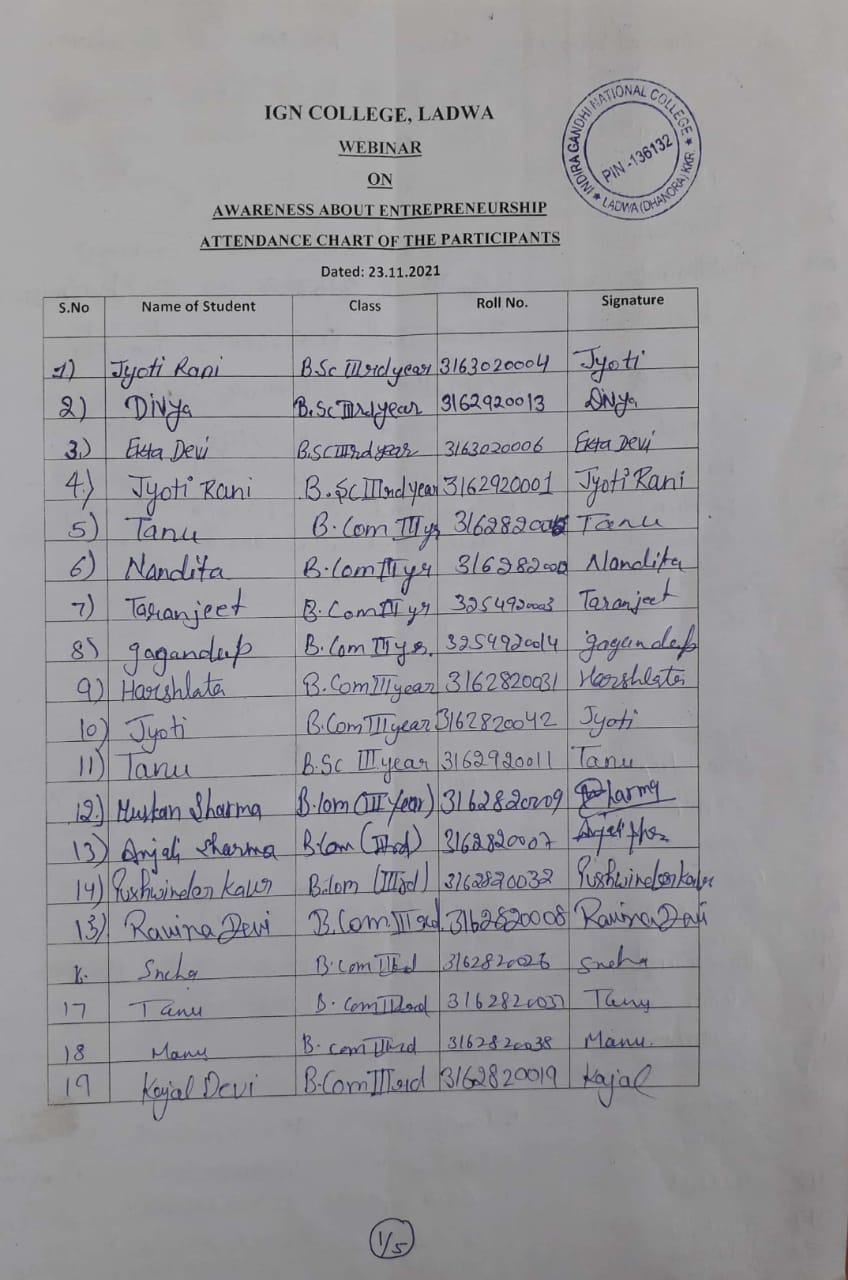 IGN COLLEGE, LADWA
WEBINAR
ON
AWARENESS ABOUT ENTREPRENEURSHIP
ATTENDANCE CHART OF THE PARTICIPANTS
Dated: 23.11.2021
INDIRA GANDHI NATIONAL COLLEGE ★ LADWA (DHANORA) KKR. ★
PIN-136132
S.No Name of Student Class Roll No. Signature
1) Jyoti Rani B.Sc IIIrd year 3163020004 Jyoti
2) Divya B.Sc IIIrd year 3162920013 Divya
3.) Ekta Devi B.SC IIIrd year 3163020006 Ekta Devi
4.) Jyoti Rani B.Sc IIIrd year 3162920001 Jyoti Rani
5) Tanu B.Com III yr Tanu
6) Nandita B.Com III yr Nandita
7) Taranjeet B.Com III yr 3254920003 Taranjeet
8) gagandeep B.Com III yr. 3254920014 gagandeep
9) Harshlata B.Com III year 3162820031 Harshlata
10) Jyoti B.Com III year 3162820042 Jyoti
11) Tanu B.Sc III year 3162920011 Tanu
12.) Muskan Sharma B.Com (III Year) 3162820009 Sharma
13) Anjali Sharma B.Com (IIIrd) 3162820007
14) Pushwinder Kaur B.Com (IIIrd) 3162820032 Pushwinder kaur
15) Ravina Devi B.Com. IIIrd. 3162820008 Ravina Devi
Sneha B.com IIIrd 3162820026 Sneha
17 Tanu B.Com IIIrd 3162820037 Tanu
18 Manu B.com IIIrd 3162820038 Manu.
19 Kajal Devi B.Com IIIrd 3162820019 Kajal
1/5